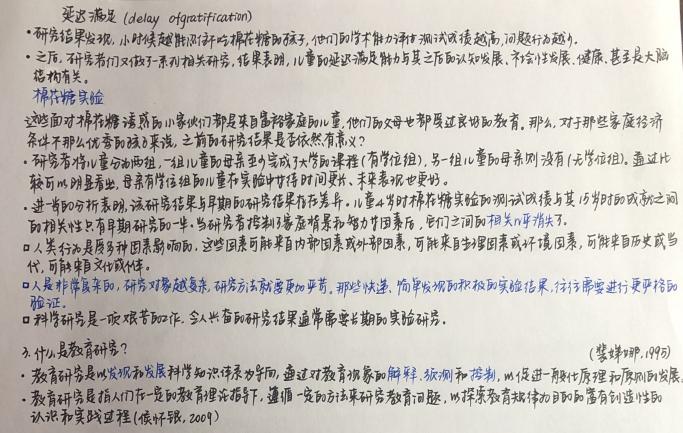 延迟满足 (delay ofgratification)
·研究结果发现，小时候越能抵住吃棉花糖的孩子，他们的学术能力评估测试成绩越高，问题行为越少。
·之后，研究者们又做了一系列相关研究，结果表明，儿童的延迟满足能力与其之后的认知发展、社会性发展、健康、甚至是大脑
结构有关。
棉花糖实验
这些面对棉花糖诱惑的小家伙们都是来自富裕家庭的儿童，他们的父母也都受过良好的教育。那么，对于那些家庭经济
条件不那么优秀的孩子来说，之前的研究结果是否依然有意义？
·研究者将儿童分为两组，一组儿童的母亲至少完成了大学的课程（有学位组），另一组儿童的母亲则没有（无学位组）。通过比
较可以明显看出，母亲有学位组的儿童在实验中等待时间更长、未来表现也更好。
·进一步的分析表明，该研究结果与早期的研究结果存在差异。儿童4岁时棉花糖实验的测试成绩与其15岁时的成就之间
的相关性只有早期研究的一半。当研究者控制了家庭背景和智力等因素后，它们之间的相关几乎消失了。
□人类行为是受多种因素影响的，这些因素可能来自内部因素或外部因素，可能来自生理因素或环境因素，可能来自历史或当
代，可能来自文化或个体。
□人是非常复杂的，研究对象越复杂，研究方法就需要更加严苛。那些快速、简单发现的积极的实验结果，往往需要进行更严格的
验证。
□科学研究是一项艰苦的工作，令人兴奋的研究结果通常需要长期的实验研究。
3.什么是教育研究？ (裴娣娜，1995)
·教育研究是以发现和发展科学知识体系为导向，通过对教育现象的解释、预测和控制，以促进一般化原理和原则的发展。
·教育研究是指人们在一定的教育理论指导下，遵循一定的方法来研究教育问题，以探索教育规律为目的的富有创造性的
认识和实践过程(侯怀银，2009)